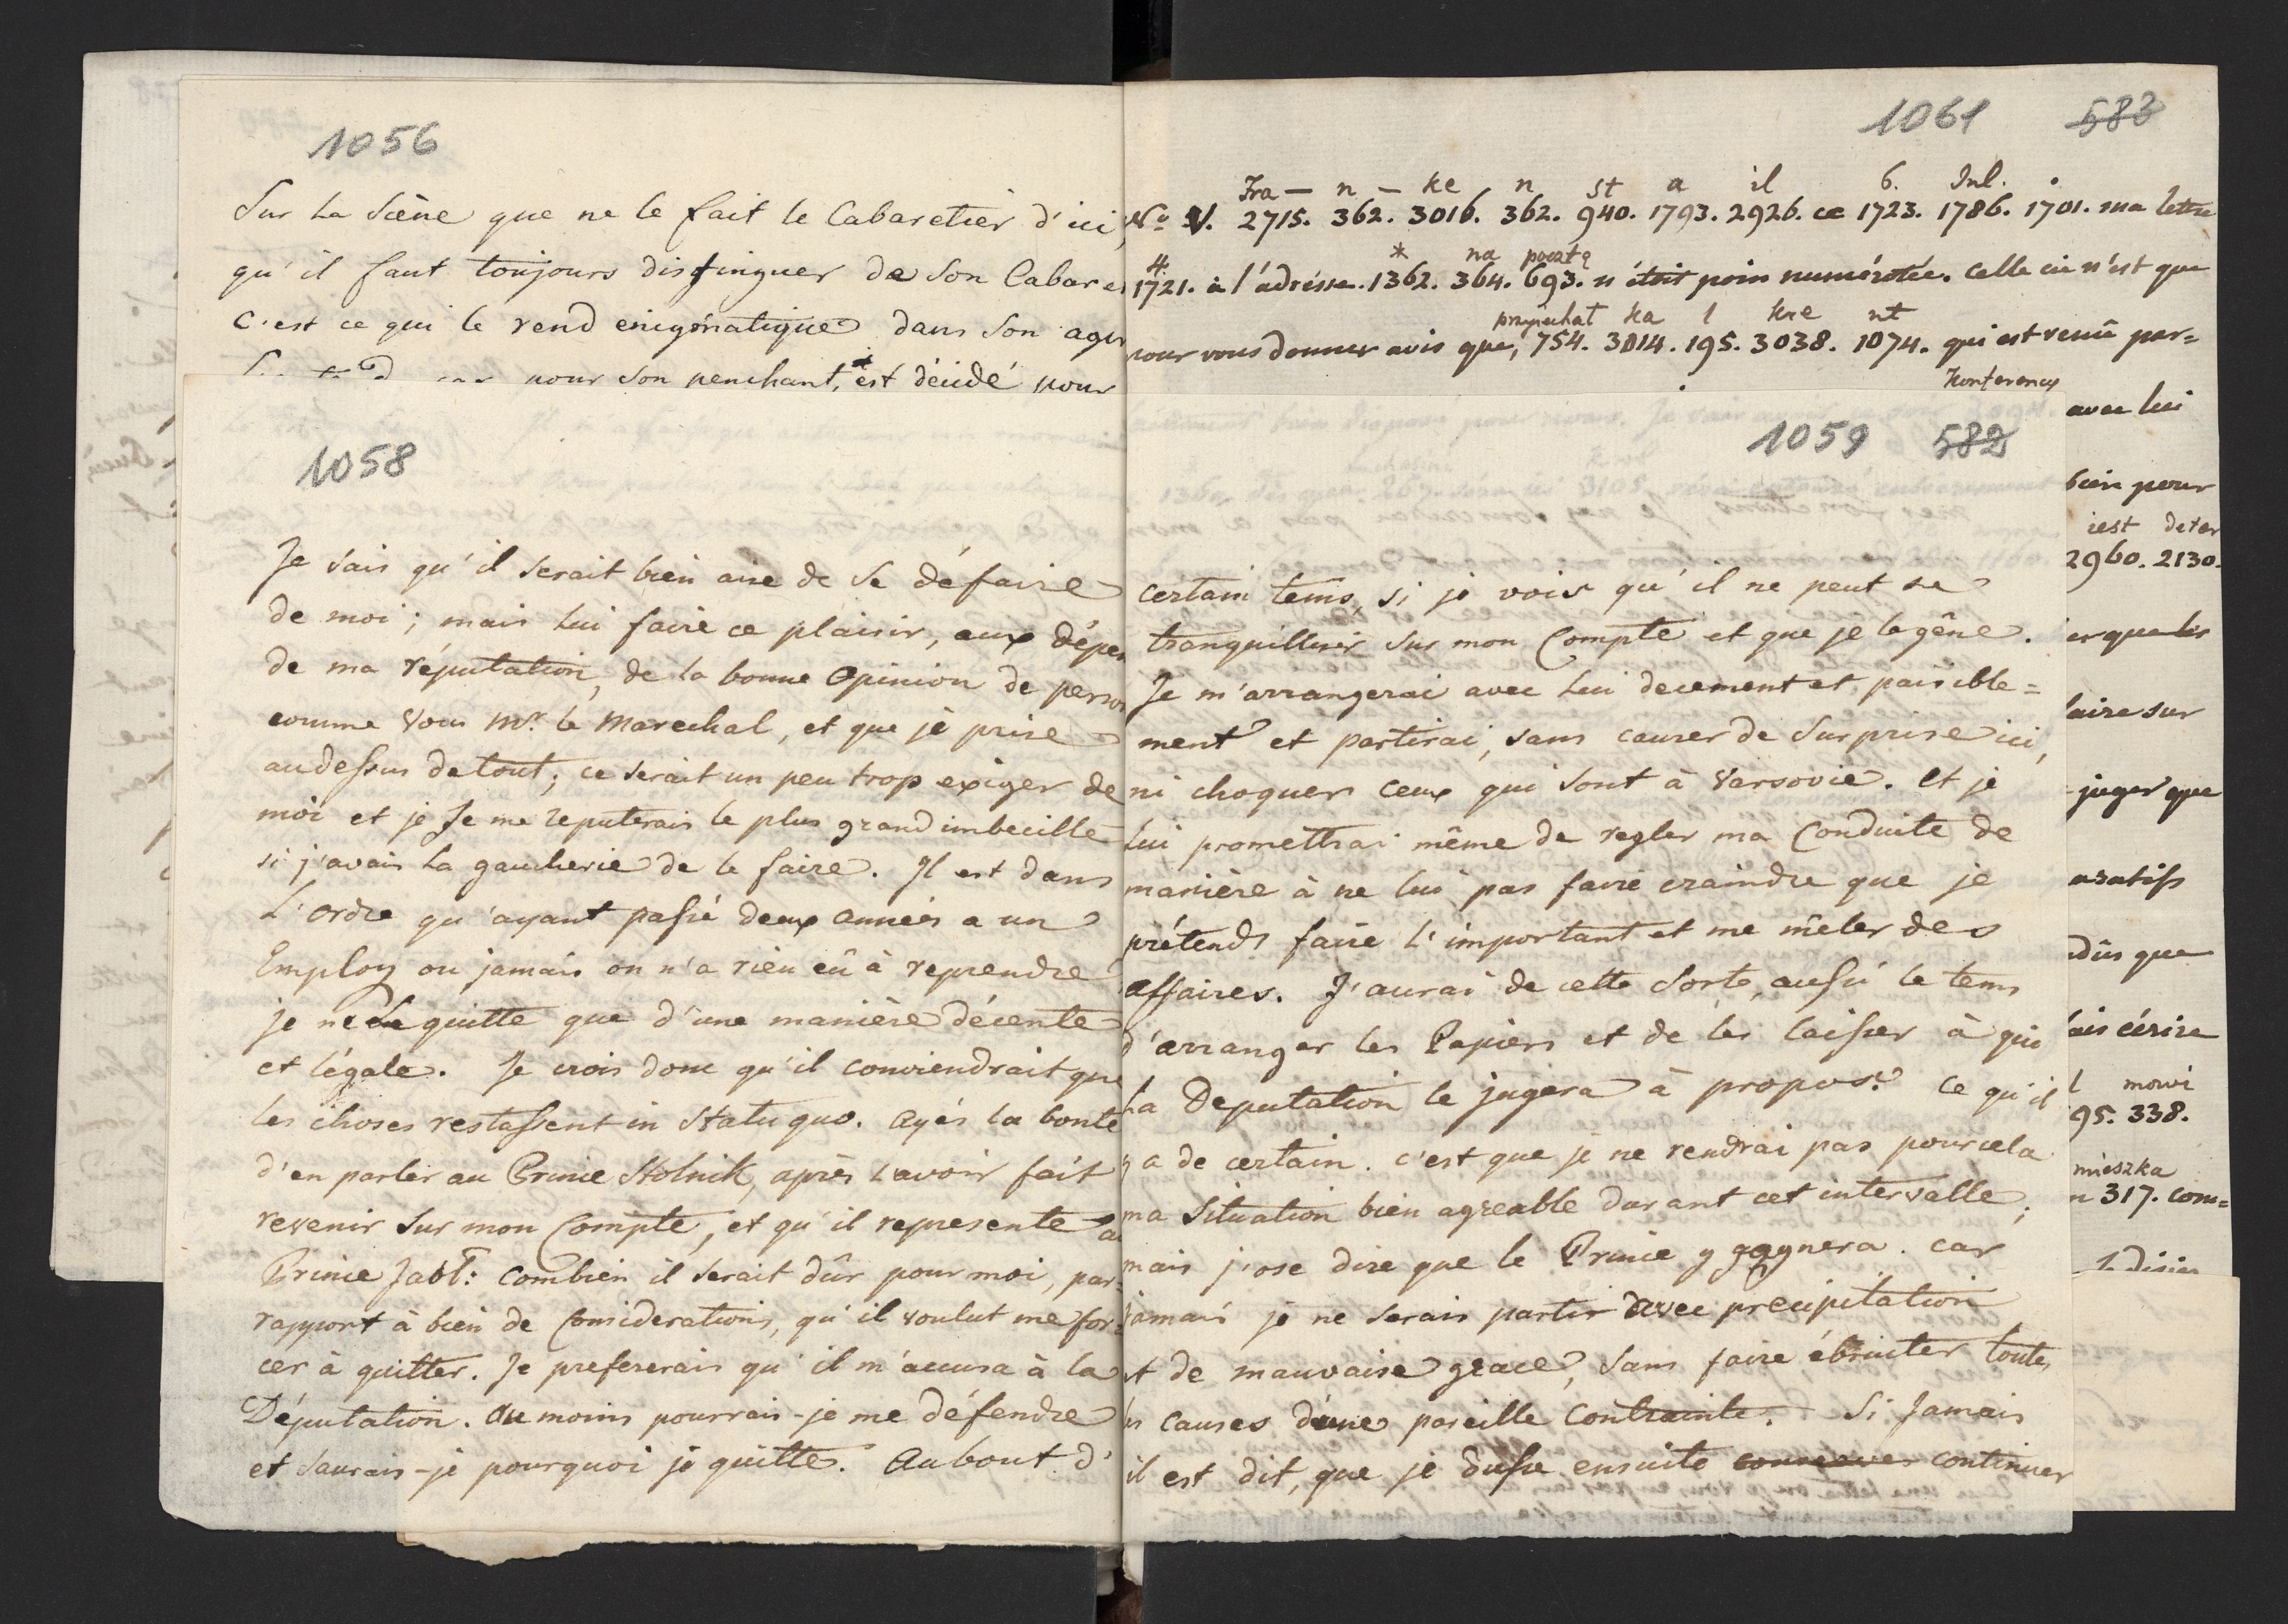 1056
Sur la Scène que ne le fait le Cabaretier d'ici,
qu'il faut toujours distinguer de Son Cabare
C'est ce qui le rend enigmatique dans Son
pour Son penchant, est décidé pour
1058
Je sais qu'il serait bien aise de Se défaire
de moi; mais Lui faire ce plaisir, aux dépen
de ma réputation, de la bonne Opinion de person
comme Vous Mr. le Marechal, et que je prise
audessus de tout; ce serait un peu trop exiger de
moi et je Je me reputerais le plus grand imbecille
si j'avais la gaucherie de le faire. Il est dans
L'ordre qu'ayant passé deux années a un
Employ ou jamais on n'a rien eû à reprendre
je ne le quitte que d'une manière décente
et légale. Je crois donc qu'il conviendrait que
les choses restassent in Statu quo. Ayés la bonté
d'en parler au Prince Stolnik, après l'avoir fait
revenir Sur mon Compte, et qu'il represente au
Prince Jabł: combien il Serait dûr pour moi, par=
rapport à bien de Considerations, qu'il voulut me for=
cer à quitter. Je prefererais qu'il m'accusa à la
Députation. Au moins pourrais-je me défendre
et Saurais-je pourquoi je quitte. Au bout d'
1061 583
Fra — n — ke n st a il 6. Jul.
No V. 2715. 362. 3016. 362. 940. 1793. 2926. ce 1723. 1786. 1701. ma lettre
4 * na pocztę
1721. à l'adresse. 1362. 364. 693. n'étoit poin numérotée. Celle cie n'est que
przyjechał ka l kre nt
pour vous donner avis que, 754. 3014. 195. 3038. 1074. qui est venû par=
Konferency
avec lui
bien pour
iest deter
2960. 2130.
er que les
aire sur
juger que
dûs que
ais écrire
l mowi
95. 338.
mieszka
n 317. com=
1059 582
certain tems, si je vois qu'il ne peut se
tranquilliser Sur mon Compte et que je le gêne.
Je m'arrangerai avec Lui decement et paisible=
ment et partirai, sans causer de Surprise ici,
ni choquer ceux qui Sont à Varsovie. Et je
Lui promettrai même de regler ma Conduite de
manière à ne lui pas faire craindre que je
prétends faire L'important et me mêler des
affaires. J'aurai de cette Sorte, aussi le tems
d'arranger les Papiers et de les laisser à qui
La Deputation le jugera à propos. Ce qu'il
y a de certain. c'est que je ne rendrai pas pour cela
ma Situation bien agreable durant cet intervalle;
mais j'ose dire que le Prince y gagnera. car
jamais je ne Serais partir avec precipitation
et de mauvaise grace, Sans faire ébruiter toutes
les causes d'une pareille Contrainte. Si Jamais
il est dit, que je dusse ensuite continuer